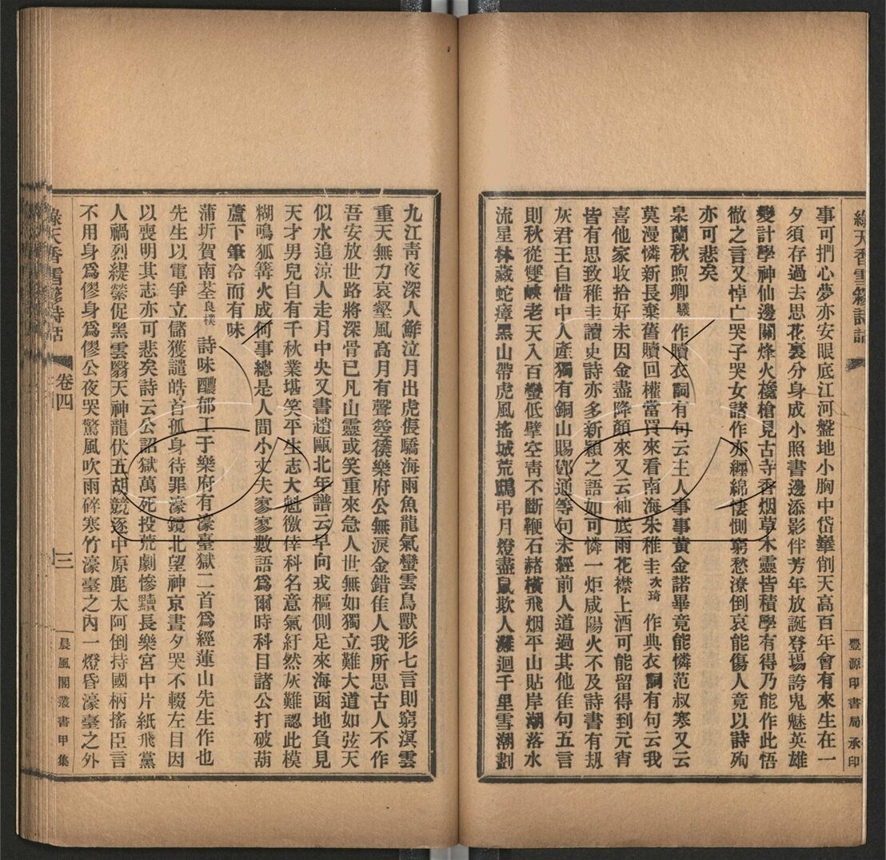 綠天香雪簃詩話
豐源印書局承印
事可捫心夢亦安眼底江河盤地小胸中岱華削天高百年會有來生在一
夕須存過去思花裏分身成小照書邊添影伴芳年放誕登場誇鬼魅英雄
變計學神仙邊關烽火攙槍見古寺香烟草木靈皆積學有得乃能作此悟
徹之言又悼亡哭子哭女諸作亦纏綿悽惻窮愁潦倒哀能傷人竟以詩殉
亦可悲矣
皋蘭秋煦卿驥作贖衣詞有句云主人事事黃金諾畢竟能憐范叔寒又云
莫漫憐新長棄舊贖回權當買來看南海朱稚圭次琦作典衣詞有句云我
喜他家收拾好未因金盡降顏來又云袖底雨花襟上酒可能留得到元宵
皆有思致稚圭讀史詩亦多新穎之語如可憐一炬咸陽火不及詩書有刧
灰君王自惜中人產獨有銅山賜鄧通等句未經前人道過其他佳句五言
則秋從雙峽老天入百蠻低壁空靑不斷鞭石赭橫飛烟平山貼岸潮落水
流星林藏蛇瘴黑山帶虎風搖城荒鵩弔月燈盡鼠欺人灘迴千里雪潮劃
九江靑夜深人鮮泣月出虎倀驕海雨魚龍氣蠻雲鳥獸形七言則窮溟雲
重天無力哀壑風高月有聲箜篌樂府公無淚金錯佳人我所思古人不作
吾安放世路將深骨已凡山靈或笑重來急人世無如獨立難大道如弦天
似水追涼人走月中央又書趙甌北年譜云早向戎樞側足來海函地負見
天才男兒自有千秋業堪笑平生志大魁徼倖科名意氣紆然灰難認此模
糊鳴狐篝火成何事總是人間小丈夫寥寥數語爲爾時科目諸公打破葫
蘆下筆冷而有味
蒲圻賀南荃良樸詩味醲郁工于樂府有濠臺獄二首爲經蓮山先生作也
先生以電爭立儲獲譴皓首孤身待罪濠鏡北望神京晝夕哭不輟左目因
以喪明其志亦可悲矣詩云公詔獄萬死投荒劇慘黷長樂宮中片紙飛黨
人禍烈緹縈促黑雲翳天神龍伏五胡競逐中原鹿太阿倒持國柄搖臣言
不用身爲僇身爲僇公夜哭驚風吹雨碎寒竹濠臺之內一燈昏濠臺之外
綠天香雪簃詩話
卷四
三
晨風閣叢書甲集